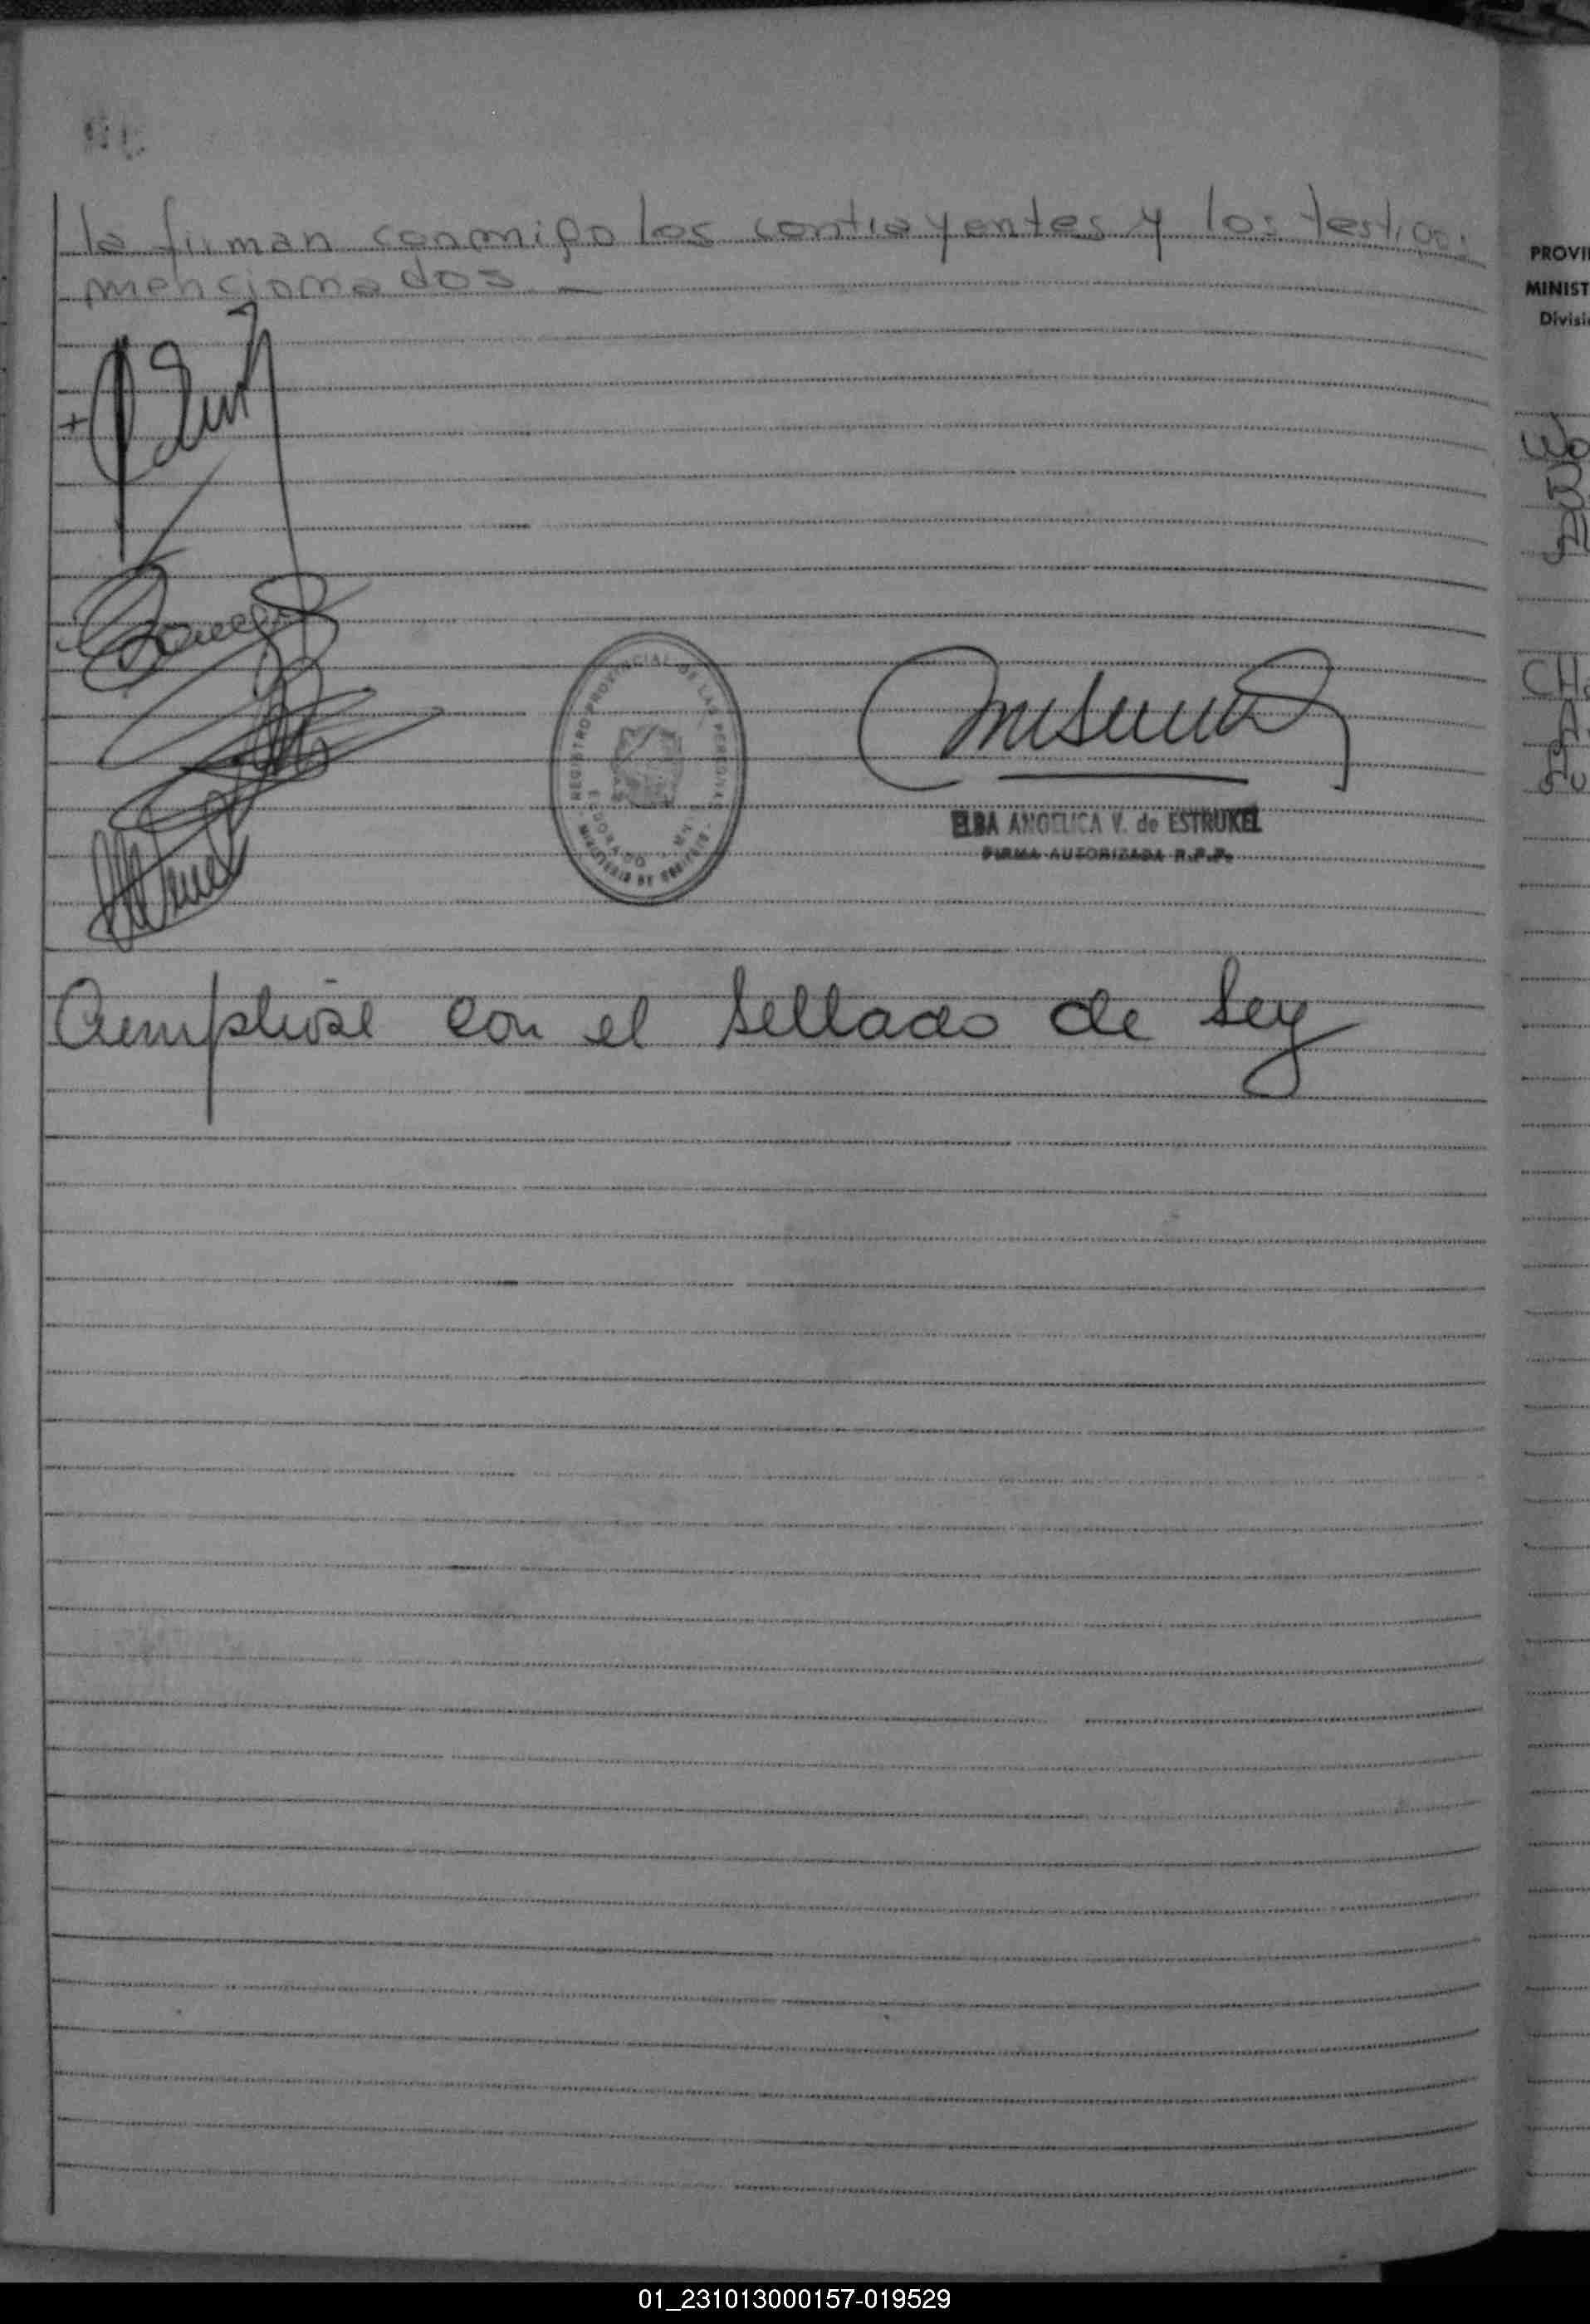 la firman conmigo los contrayentes y los testigos
mencionados. —
REGISTRO PROVINCIAL DE LAS PERSONAS
ELDORADO
MINISTERIO DE GOBIERNO
ELBA ANGELICA V. de ESTRUKEL
FIRMA AUTORIZADA R.P.P.
Cumpliose con el Sellado de Ley
PROVI
MINIST
Divisi
Wo
B
Al
CHa
A
01_231013000157-019529